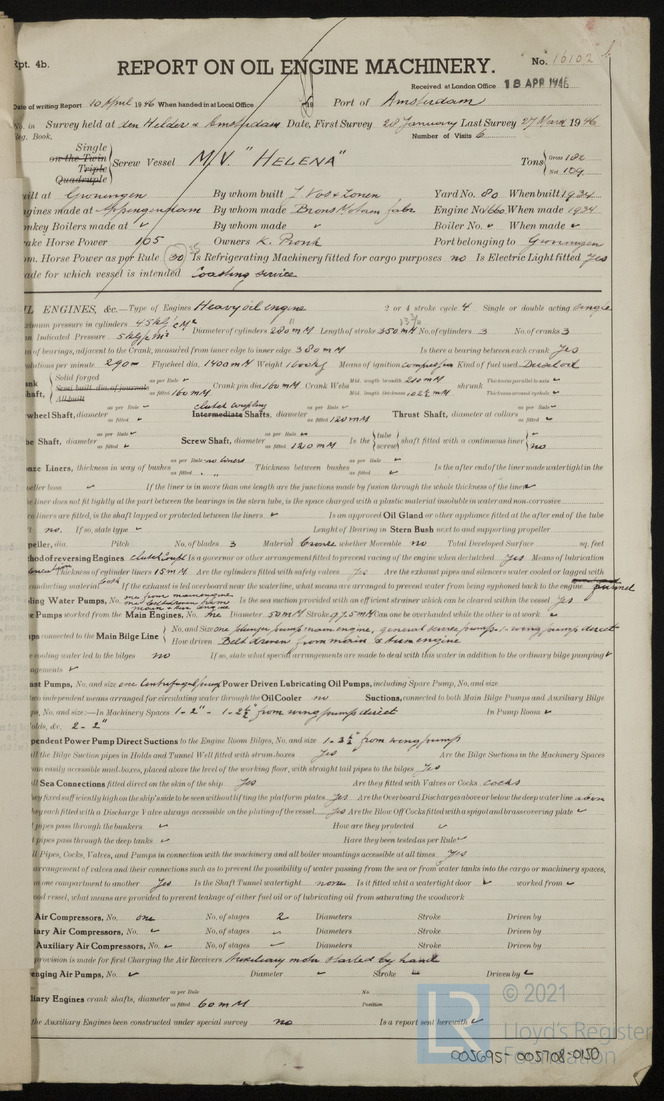 Rpt. 4b.
REPORT ON OIL ENGINE MACHINERY.
No. 16102
Received at London Office 18 APR 1946
Date of writing Report 10 April 1946 When handed in at Local Office 19 Port of Amsterdam
No. in Survey held at den Helder & Amsterdam Date, First Survey 28 January Last Survey 27 March 1946
Reg. Book. Number of Visits 6
Single
on the Twin
Triple
Quadruple
Screw Vessel M/V. "HELENA" Tons Gross 182
Net 109
uilt at Groningen By whom built Yard No. 80 When built 1934
gines made at Appingendam By whom made Brons Motoren fabr Engine No. 660 When made 1934
nkey Boilers made at By whom made Boiler No. When made
ake Horse Power 165 Owners K. Pronk Port belonging to Groningen
m. Horse Power as per Rule 30 Is Refrigerating Machinery fitted for cargo purposes no Is Electric Light fitted yes
ade for which vessel is intended Coasting service
IL ENGINES, &c.—Type of Engines Heavy oil engine 2 or 4 stroke cycle 4 Single or double acting Single
ximum pressure in cylinders 45 kg/cm² Diameter of cylinders 280 mm Length of stroke 350 mm No. of cylinders 3 No. of cranks 3
an Indicated Pressure
n of bearings, adjacent to the Crank, measured from inner edge to inner edge 380 mm Is there a bearing between each crank Yes
olutions per minute 290 Flywheel dia. 1400 mm Weight 1600 kg Means of ignition compression Kind of fuel used Diesel oil
ank haft, Solid forged
Semi built dia. of journals
All built
as per Rule
as fitted 160 mm Crank pin dia. 160 mm Crank Webs Mid. length breadth 210 mm shrunk Thickness parallel to axis
Mid. length thickness Thickness around eyehole
wheel Shaft, diameter as per Rule as fitted clutch coupling Intermediate Shafts, diameter as per Rule as fitted 120 mm Thrust Shaft, diameter at collars as per Rule as fitted
be Shaft, diameter as per Rule as fitted Screw Shaft, diameter as per Rule as fitted 120 mm Is the tube screw shaft fitted with a continuous liner no
nze Liners, thickness in way of bushes as per Rule no liners as fitted Thickness between bushes as per Rule as fitted Is the after end of the liner made watertight in the
peller boss If the liner is in more than one length are the junctions made by fusion through the whole thickness of the liner
e liner does not fit tightly at the part between the bearings in the stern tube, is the space charged with a plastic material insoluble in water and non-corrosive
o liners are fitted, is the shaft lapped or protected between the liners Is an approved Oil Gland or other appliance fitted at the after end of the tube
t no. If so, state type Lenght of Bearing in Stern Bush next to and supporting propeller
peller, dia. Pitch No. of blades 3 Material bronze whether Moveable no Total Developed Surface sq. feet
thod of reversing Engines clutch Is a governor or other arrangement fitted to prevent racing of the engine when declutched yes Means of lubrication
Thickness of cylinder liners 15 mm Are the cylinders fitted with safety valves Yes Are the exhaust pipes and silencers water cooled or lagged with
nducting material both If the exhaust is led overboard near the waterline, what means are arranged to prevent water from being syphoned back to the engine
ling Water Pumps, No. one from main engine Is the sea suction provided with an efficient strainer which can be cleared within the vessel Yes
e Pumps worked from the Main Engines, No. one Diameter 50 mm Stroke 97,5 mm Can one be overhauled while the other is at work
ps connected to the Main Bilge Line No. and Size one bilge pump main engine, general service pump 1 wing pump direct
How driven Belt driven from main & aux engine
e cooling water led to the bilges no If so, state what special arrangements are made to deal with this water in addition to the ordinary bilge pumping
ngements
ast Pumps, No. and size one Centrifugal pump Power Driven Lubricating Oil Pumps, including Spare Pump, No. and size
two independent means arranged for circulating water through the Oil Cooler no Suctions, connected to both Main Bilge Pumps and Auxiliary Bilge
ps, No. and size:—In Machinery Spaces 1-2" - 1-2½" from wing pump direct In Pump Room
olds, &c. 2-2"
pendent Power Pump Direct Suctions to the Engine Room Bilges, No. and size 1-2½" from wing pump
all the Bilge Suction pipes in Holds and Tunnel Well fitted with strum-boxes Yes Are the Bilge Suctions in the Machinery Spaces
om easily accessible mud-boxes, placed above the level of the working floor, with straight tail pipes to the bilges Yes
all Sea Connections fitted direct on the skin of the ship Yes Are they fitted with Valves or Cocks cocks
hey fixed sufficiently high on the ship's side to be seen without lifting the platform plates Yes Are the Overboard Discharges above or below the deep water line above
hey each fitted with a Discharge Valve always accessible on the plating of the vessel Yes Are the Blow Off Cocks fitted with a spigot and brass covering plate
t pipes pass through the bunkers How are they protected
t pipes pass through the deep tanks Have they been tested as per Rule
ll Pipes, Cocks, Valves, and Pumps in connection with the machinery and all boiler mountings accessible at all times Yes
arrangement of valves and their connections such as to prevent the possibility of water passing from the sea or from water tanks into the cargo or machinery spaces,
m one compartment to another Yes Is the Shaft Tunnel watertight none Is it fitted whit a watertight door worked from
ood vessel, what means are provided to prevent leakage of either fuel oil or of lubricating oil from saturating the woodwork
Air Compressors, No. one No. of stages 2 Diameters Stroke Driven by
iary Air Compressors, No. No. of stages Diameters Stroke Driven by
Auxiliary Air Compressors, No. No. of stages Diameters Stroke Driven by
provision is made for first Charging the Air Receivers Auxiliary motor started by hand
enging Air Pumps, No. Diameter Stroke Driven by
liary Engines crank shafts, diameter as per Rule as fitted 60 mm No. Position
the Auxiliary Engines been constructed under special survey no Is a report sent herewith
LR
© 2021
Lloyd's Register
Foundation
005695-005708-0150